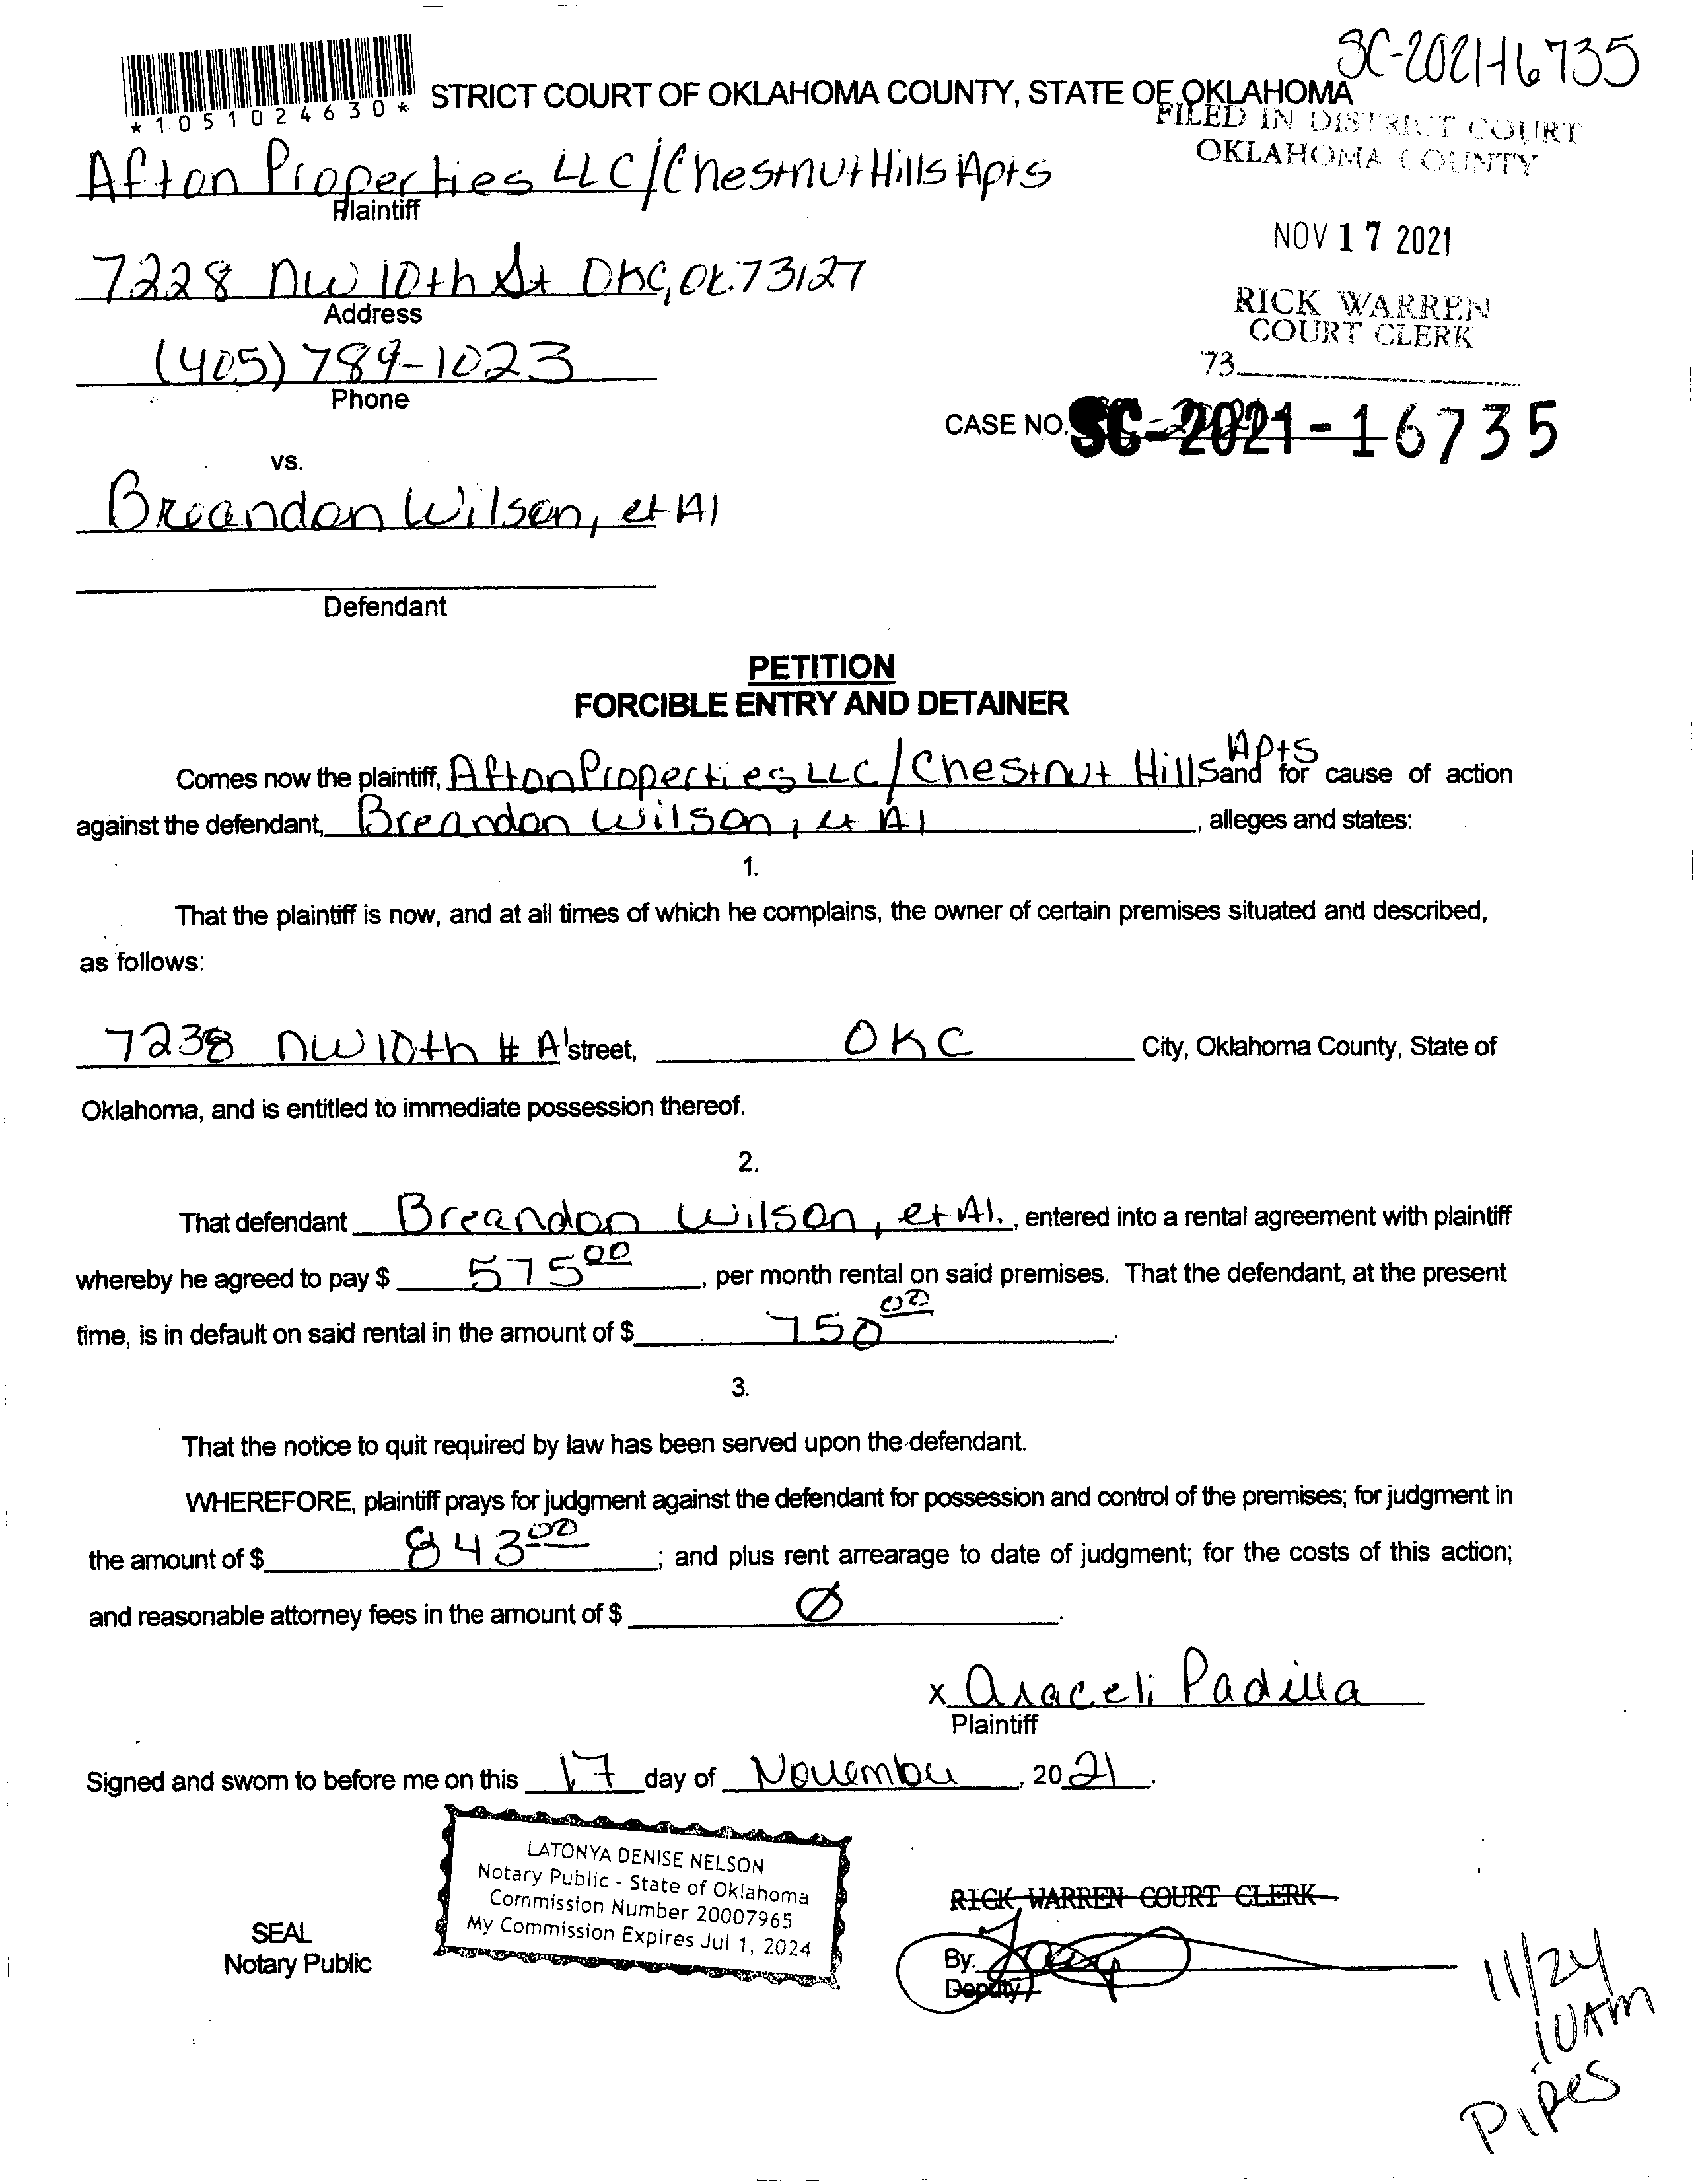 SC-2021-16735
*1051024630*
STRICT COURT OF OKLAHOMA COUNTY, STATE OF OKLAHOMA
FILED IN DISTRICT COURT
OKLAHOMA COUNTY
Afton Properties LLC/Chestnut Hills Apts
Plaintiff
NOV 17 2021
7228 NW 10th St OKC, Ok. 73127
Address
RICK WARREN
COURT CLERK
73
(405) 789-1023
Phone
CASE NO. SC-2021-16735
vs.
Breandon Wilson, et Al
Defendant
PETITION
FORCIBLE ENTRY AND DETAINER
Comes now the plaintiff, Afton Properties LLC/Chestnut Hills Apts and for cause of action
against the defendant, Breandon Wilson, et Al, alleges and states:
1.
That the plaintiff is now, and at all times of which he complains, the owner of certain premises situated and described,
as follows:
7238 NW 10th # A' street, OKC City, Oklahoma County, State of
Oklahoma, and is entitled to immediate possession thereof.
2.
That defendant Breandon Wilson, et Al., entered into a rental agreement with plaintiff
whereby he agreed to pay $ 575 00, per month rental on said premises. That the defendant, at the present
time, is in default on said rental in the amount of $ 750 00.
3.
That the notice to quit required by law has been served upon the defendant.
WHEREFORE, plaintiff prays for judgment against the defendant for possession and control of the premises; for judgment in
the amount of $ 843 00; and plus rent arrearage to date of judgment; for the costs of this action;
and reasonable attorney fees in the amount of $ Ø.
x Araceli Padilla
Plaintiff
Signed and sworn to before me on this 17 day of November, 2021.
LATONYA DENISE NELSON
Notary Public - State of Oklahoma
Commission Number 20007965
My Commission Expires Jul 1, 2024
SEAL
Notary Public
RICK WARREN COURT CLERK
By:
Deputy
11/24
10AM
Pipes